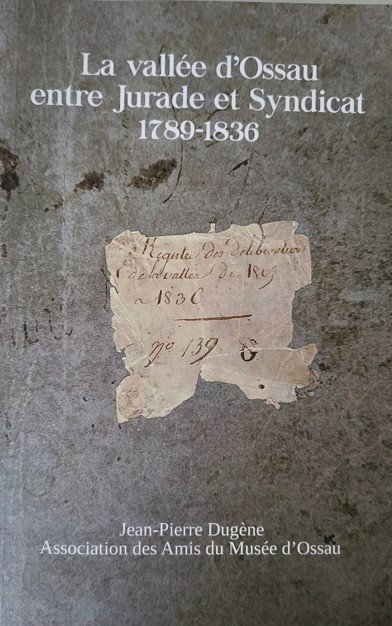 La vallée d'Ossau
entre Jurade et Syndicat
1789-1836
Registre des deliberations
de la vallée de 18
a 1836
nº 139
Jean-Pierre Dugène
Association des Amis du Musée d'Ossau